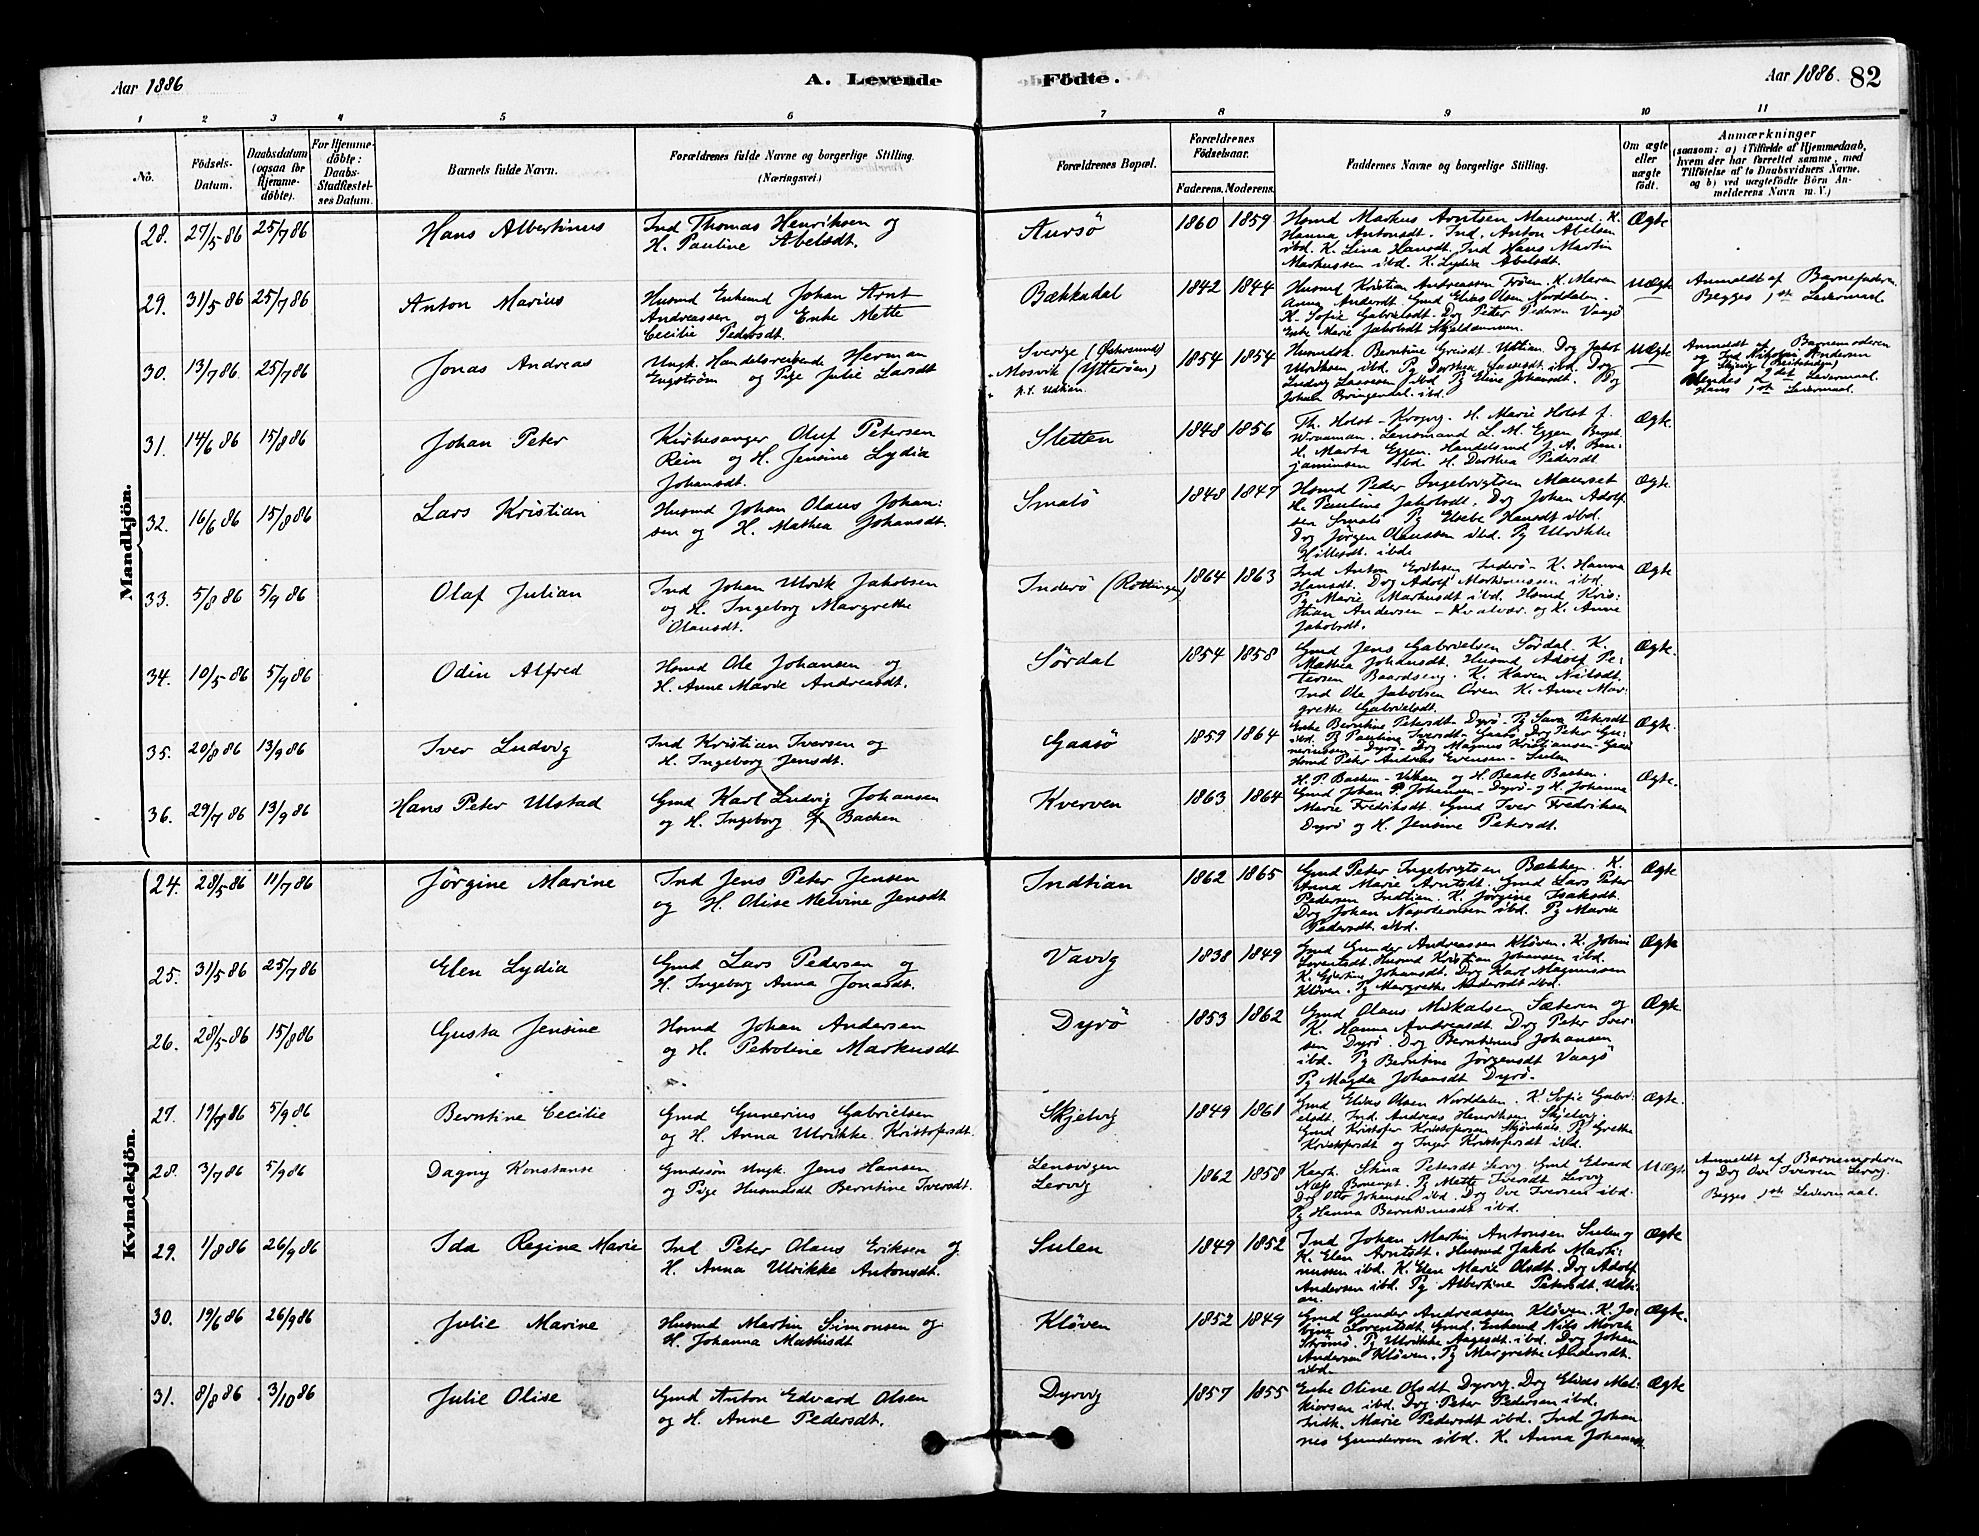 Aar 1886
A. Levende
Födte.
Aar 1886.
82
1 2 3 4 5 6 7 8 9 10 11
No.
Födsels-
Datum.
Daabsdatum
(ogsaa for
Hjemme-
döbte).
For Hjemme-
döbte:
Daabs-
Stadfæstel-
ses Datum.
Barnets fulde Navn.
Forældrenes fulde Navne og borgerlige Stilling.
(Næringsvei)
Forældrenes Bopæl.
Forældrenes
Födselsaar.
Faderens. Moderens.
Faddernes Navne og borgerlige Stilling.
Om ægte
eller
uægte
födt.
Anmærkninger
(saasom: a) i Tilfælde af Hjemmedaab,
hvem der har forrettet samme, med
Tilföielse af to Daabsvidners Navne,
og b) ved uægtefödte Börn An-
melderens Navn m. V.)
Mandkjön.
28. 27/5 86 25/7 86 Hans Albertinus
Ind Thomas Henriksen og
H. Pauline Abelsdt.
Aursö 1860 1859
Hsmd Markus Arntsen Mausund. K.
Hanna Antonsdt. Ind. Anton Abelsen
ibd. K. Lina Hansdt. Ind Hans Martin
Markussen ibd. K. Lydia Abelsdt.
Ægte
29. 31/5 86 25/7 86 Anton Marius
Husmd Enkemd Johan Arnt
Andreassen og Enke Mette
Cecilie Pedersdt.
Bækkadal 1842 1844
Husmd Kristian Andreassen Trøen. K. Maren
Anna Andersdt. Gmd Elias Olsen Norddalen.
K. Sofie Gabrielsdt. Drg Peter Pedersen Vaagö
Enke Marie Jakobsdt
Uægte
Anmeldt af Barnefaderen
Begges 1ste Leiermaal.
30. 13/7 86 25/7 86 Jonas Andreas
Ungk. Handelsreisende Herman
Engström og Pige Julie Larsdt
Sverige (Østersund)
Mosvik (Ytterøen)
1854 1854
Berntine Udtian. Drg Jakob
Ulriksen ibd. Pg Dorthea ibd. Drg
Ludvig Lassesen ibd Pg Eline Johansdt. Drg
Johan ibd.
Uægte
Anmeldt af Barnemoderen
og Ind Nikolai Andersen
Hendes 2det Leiermaal
Hans 1ste Leiermaal.
31. 14/6 86 15/8 86 Johan Peter
Kirkesanger Oluf Petersen
Rein og H. Jensine Lydia
Johansdt.
Sletten 1848 1856
Th. Holst - H. Marie Holst f.
Lensmand L. M. Eggen
H. Marta Eggen. Handelsmd J. A. Ben-
jaminsen ibd H. Dorthea Pedersdt.
Ægte.
32. 16/6 86 15/8 86 Lars Kristian
Husmd Johan Olaus Johan:
sen og H. Mathea Johansdt.
Smalö 1848 1847
Hsmd Peder Ingebrigtsen Mauset
H. Pauline Jakobsdt. Drg Johan Adolf
sen Smalö Pg Elsebe Hansdt ibd.
Drg Jörgen Olaussen ibd. Pg Ulrikke
ibd.
Ægte.
33. 5/8 86 5/9 86 Olaf Julian
Ind Johan Ulrik Jakobsen
og H. Ingeborg Margrethe
Olausdt.
Inderö 1864 1863
Ind Anton Eriksen Inderö. K. Hanna
Hansdt. Drg Adolf Markussen ibd.
Pg Marie Markusdt ibd. Hsmd Kris:
tian Andersen - Kvalvær. og K. Anne
Jakobsdt.
Ægte
34. 10/5 86 5/9 86 Odin Alfred
Hsmd Ole Johansen og
H. Anne Marie Andreasdt.
Sördal 1854 1858
Gmd Jens Gabrielsen Sördal. K.
Mathea Johansdt. Husmd Adolf Pe-
tersen Baardseng. K. Karen Nilsdt.
Ind Ole Jakobsen Øren K. Anne Mar-
grethe Gabrielsdt.
Ægte.
35. 20/8 86 13/9 86 Iver Ludvig
Ind Kristian Iversen og
H. Ingeborg Jensdt.
Gaasö 1859 1864
Enke Berntine Petersdt - Dyrö - Pg Sara Petersdt
ibd. Pg Pauline Iversdt - Gaasö Drg Peter Gu-
neriussen - Dyrö - Drg Magnus Kristiansen -
Hsmd Peter Andreas Evensen - Sulen
Ægte.
36. 29/7 86 13/9 86 Hans Peter Ulstad
Gmd Karl Ludvig Johansen
og H. Ingeborg Bachen
Kverven 1863 1864
H. P. Bachen - og H. Beate Bachen.
Gmd Johan P. Johansen - Dyrö - og H. Johanne
Marie Fredriksdt. Gmd Iver Fredriksen
Dyrö og H. Jensine Petersdt.
Ægte.
Kvindekjön.
24. 28/5 86 11/7 86 Jörgine Marine
Ind Jens Peter Jensen
og H. Olise Melvine Jensdt
Indtian 1862 1865
Gmd Peter Ingebrigtsen Bækken K.
Anna Marie Arntsdt. Gmd Lars Peter
Pedersen Indtian. K. Jörgine Isaksdt.
Drg Johan Napoleonsen ibd. Pg Marie
Pedersdt. ibd.
Ægte
25. 31/5 86 25/7 86 Elen Lydia
Gmd Lars Pedersen og
H. Ingeborg Anna Jonasdt.
Vavig 1838 1849
Gmd Gunder Andreassen Klöven. K.
Lorentsdt. Husmd Kristian Johansen ibd.
K. Gjertine Johansdt. Drg Karl Magnussen
Klöven. Pg Margrethe Andersdt ibd.
Ægte
26. 28/5 86 15/8 86 Gusta Jensine
Hsmd Johan Andersen
og H. Petroline Markusdt
Dyrö 1853 1862
Gmd Olaus Mikalsen Sæteren og
K. Hanna Andreasdt. Drg Peter Iver-
sen Dyrö. Drg Berntinus Johansen
ibd. Pg Berntine Jörgensdt Vaagö
Pg Magda Johansdt Dyrö.
Ægte.
27. 19/7 86 5/9 86 Berntine Cecilie
Gmd Gunerius Gabrielsen
og H. Anna Ulrikke Kristofersdt.
Skjelvig 1849 1861
Gmd Elias Olsen Norddalen. K. Sofie Gabri-
elsdt. Ind. Andreas Henriksen Skjelvig.
Gmd Kristofer Kristofersen Pg Grethe
Kristofersdt og Inger Kristofersdt ibd.
Ægte.
28. 3/7 86 5/9 86 Dagny Konstanse
Gmdssön Ungk. Jens Hansen
og Pige Husmdsdt Berntine Iversdt.
Lensvigen
Lervig
1862 1858
Kaark. Stina Petersdt Lervg Gmd Edvard
Næss Pg Mette Iversdt Lervg
Drg Otto Johansen ibd. Drg Ove Iversen ibd.
Pg Hanna Berntinusdt ibd.
Uægte
Anmeldt af Barnemoderen
og Drg Ove Iversen Lervg.
Begges 1ste Leiermaal.
29. 1/8 86 26/9 86 Ida Regine Marie
Ind Peter Olaus Eriksen og
H. Anna Ulrikke Antonsdt.
Sulen 1849 1852
Ind Johan Martin Antonsen Sulen og
K. Elen Arntsdt. Husmd Jakob Marti-
nussen ibd. K. Elen Marie Olsdt. Drg Adolf
Andersen ibd. Pg Albertine Petersdt. Udti-
an.
Ægte
30. 19/6 86 26/9 86 Julie Marine
Husmd Martin Simonsen og
H. Johanna Mathisdt
Klöven 1852 1849
Gmd Gunder Andreassen Klöven. K. Jo-
Lorentsdt. Gmd. Enkemd Nils Morck
Strömö. Pg Ulrikke Aagesdt. ibd. Drg Johan
Andersen Klöven. Pg Margrethe Andersdt.
ibd.
Ægte.
31. 8/8 86 3/10 86 Julie Olise
Gmd Anton Edvard Olsen
og H. Anne Pedersdt.
Dyrvig 1857 1855
Enke Oline Olsdt Dyrvig. Drg Elias Mel-
kiorsen ibd. Drg Peter Pedersen ibd.
Marie Pedersdt ibd. Ind Johan
nes Gundersen ibd. K. Anna Johansdt.
Ægte